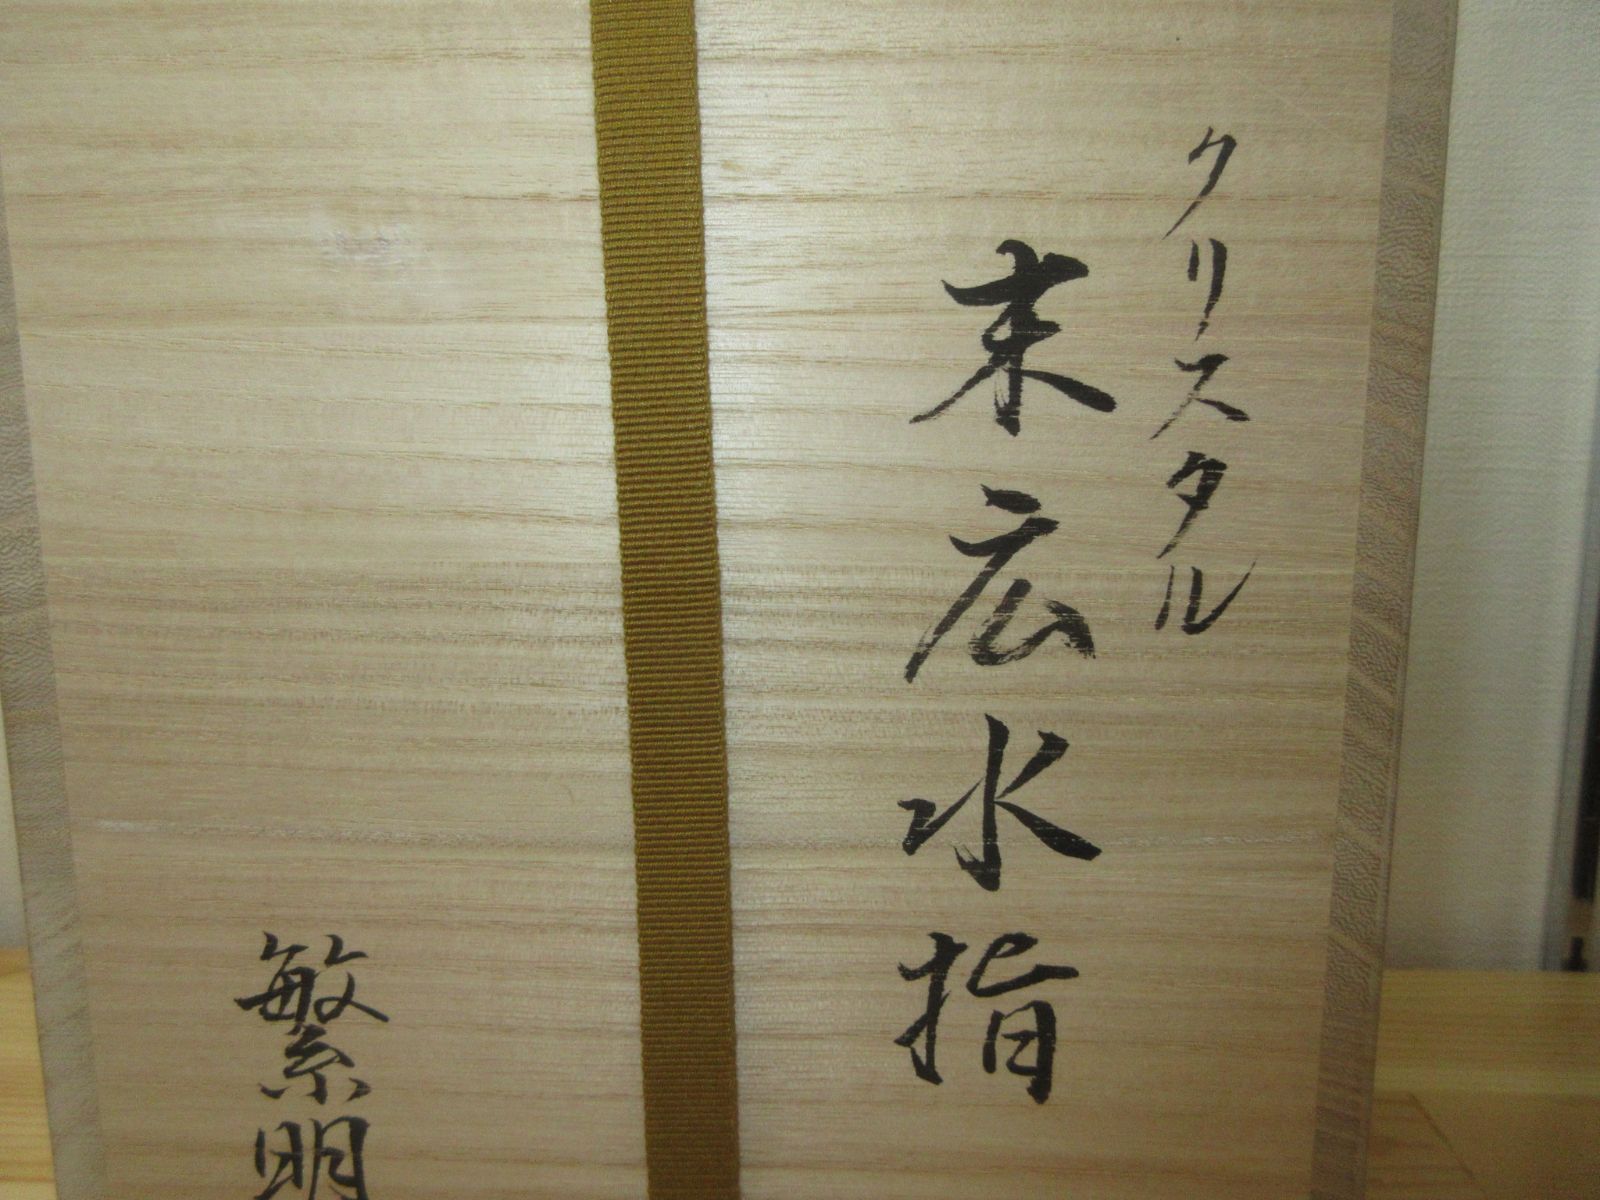 クリスタル
末広水指
繁明